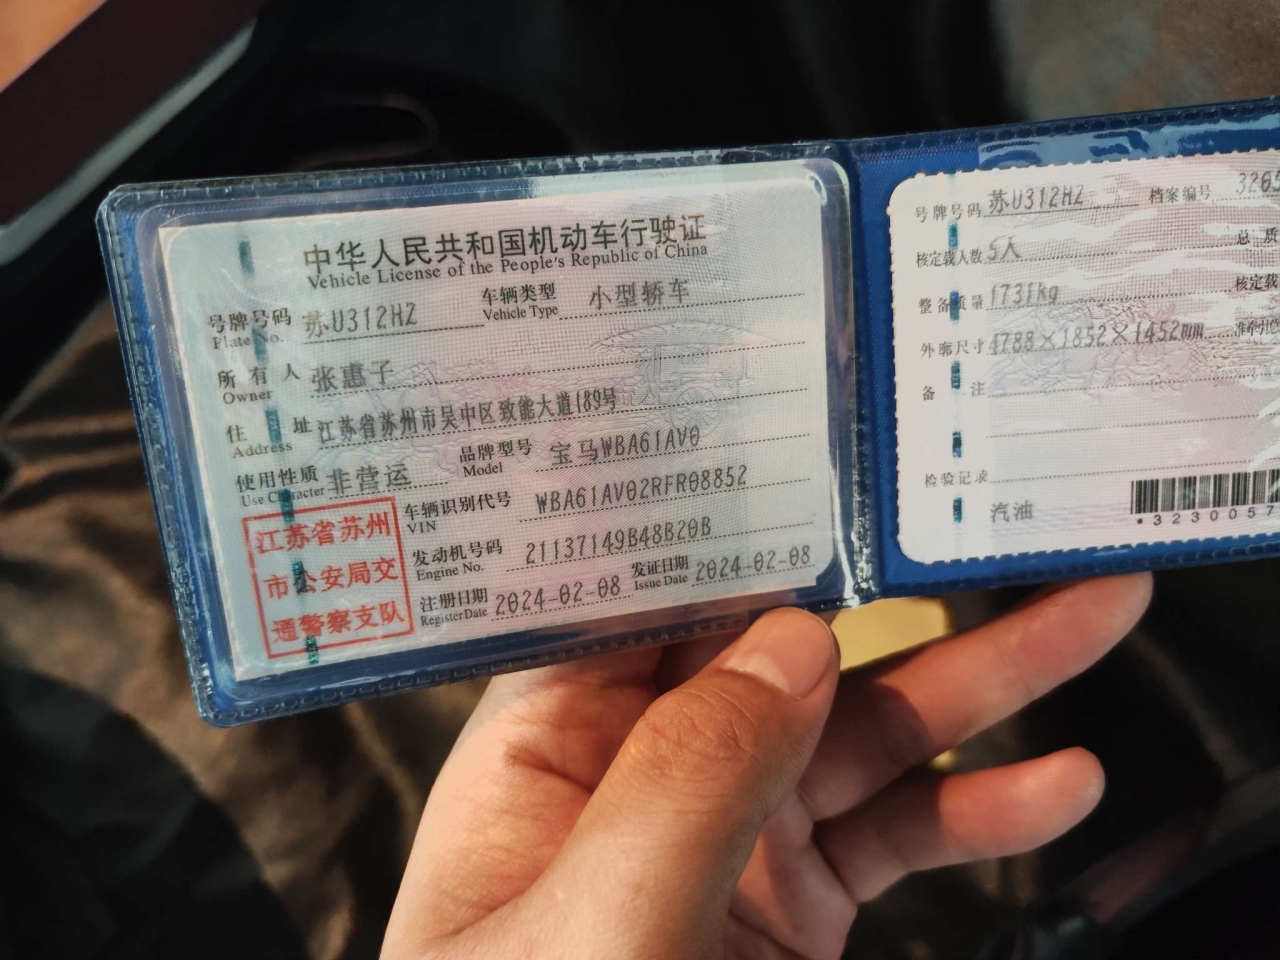 中华人民共和国机动车行驶证
Vehicle License of the People's Republic of China
号牌号码 苏U312HZ 车辆类型 小型轿车
Plate No. Vehicle Type
所有人 张惠子
Owner
住址 江苏省苏州市吴中区致能大道189号
Address
使用性质 非营运 品牌型号 宝马WBA61AV0
Use Character Model
车辆识别代号 WBA61AV02RFR08852
VIN
发动机号码 21137149B48B20B
Engine No.
注册日期 2024-02-08 发证日期 2024-02-08
Register Date Issue Date
江苏省苏州
市公安局交
通警察支队
号牌号码 苏U312HZ 档案编号 3205
核定载人数 5人 总质
整备质量 1731kg 核定载
外廓尺寸 4788×1852×1452mm 准牵引
备注
检验记录
汽油
*3230057